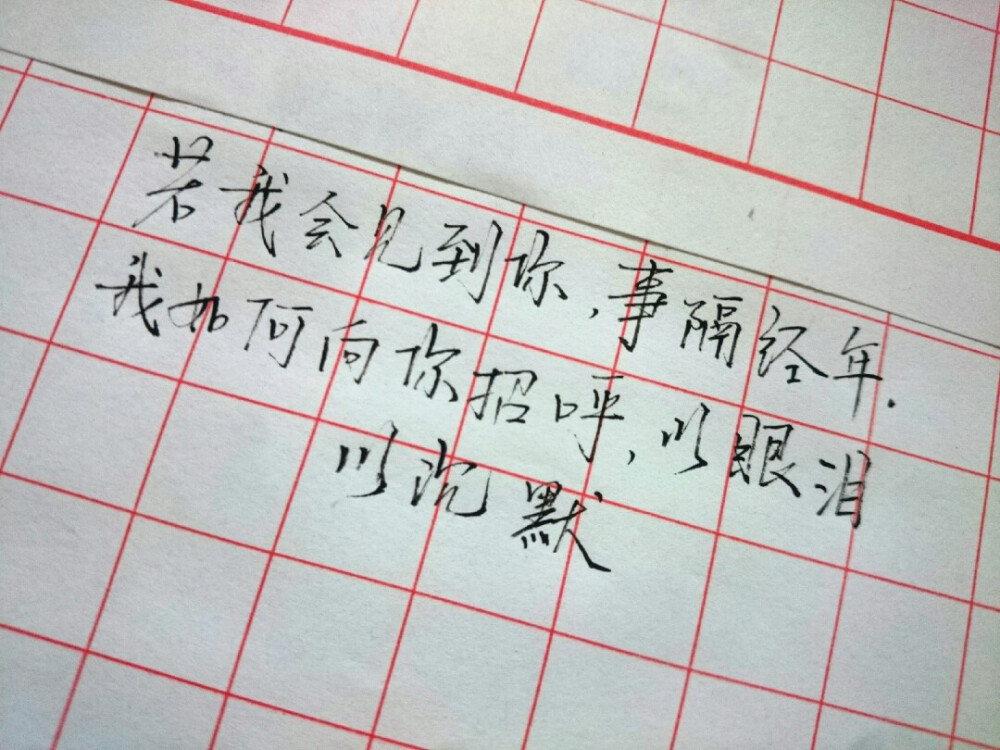 若我会见到你,事隔经年.
我如何向你招呼,以眼泪
以沉默